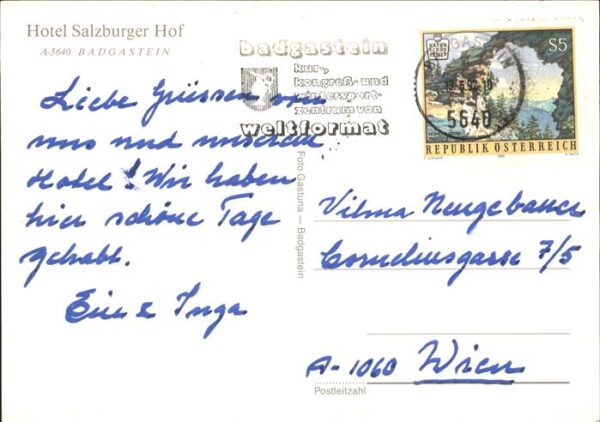 Hotel Salzburger Hof
A-5640 BADGASTEIN
badgastein
kur-,
kongreß- und
wintersport-
zentrum von
weltformat
NATUR
SCHÖN
S5
5640
REPUBLIK ÖSTERREICH
Liebe Grüssen von
uns und unserem
Hotel! Wir haben
hier schöne Tage
gehabt.
& Inga
Foto Gastuna — Badgastein
Vilma Neugebauer
Corneliusgasse 7/5
A-1060 Wien
Postleitzahl